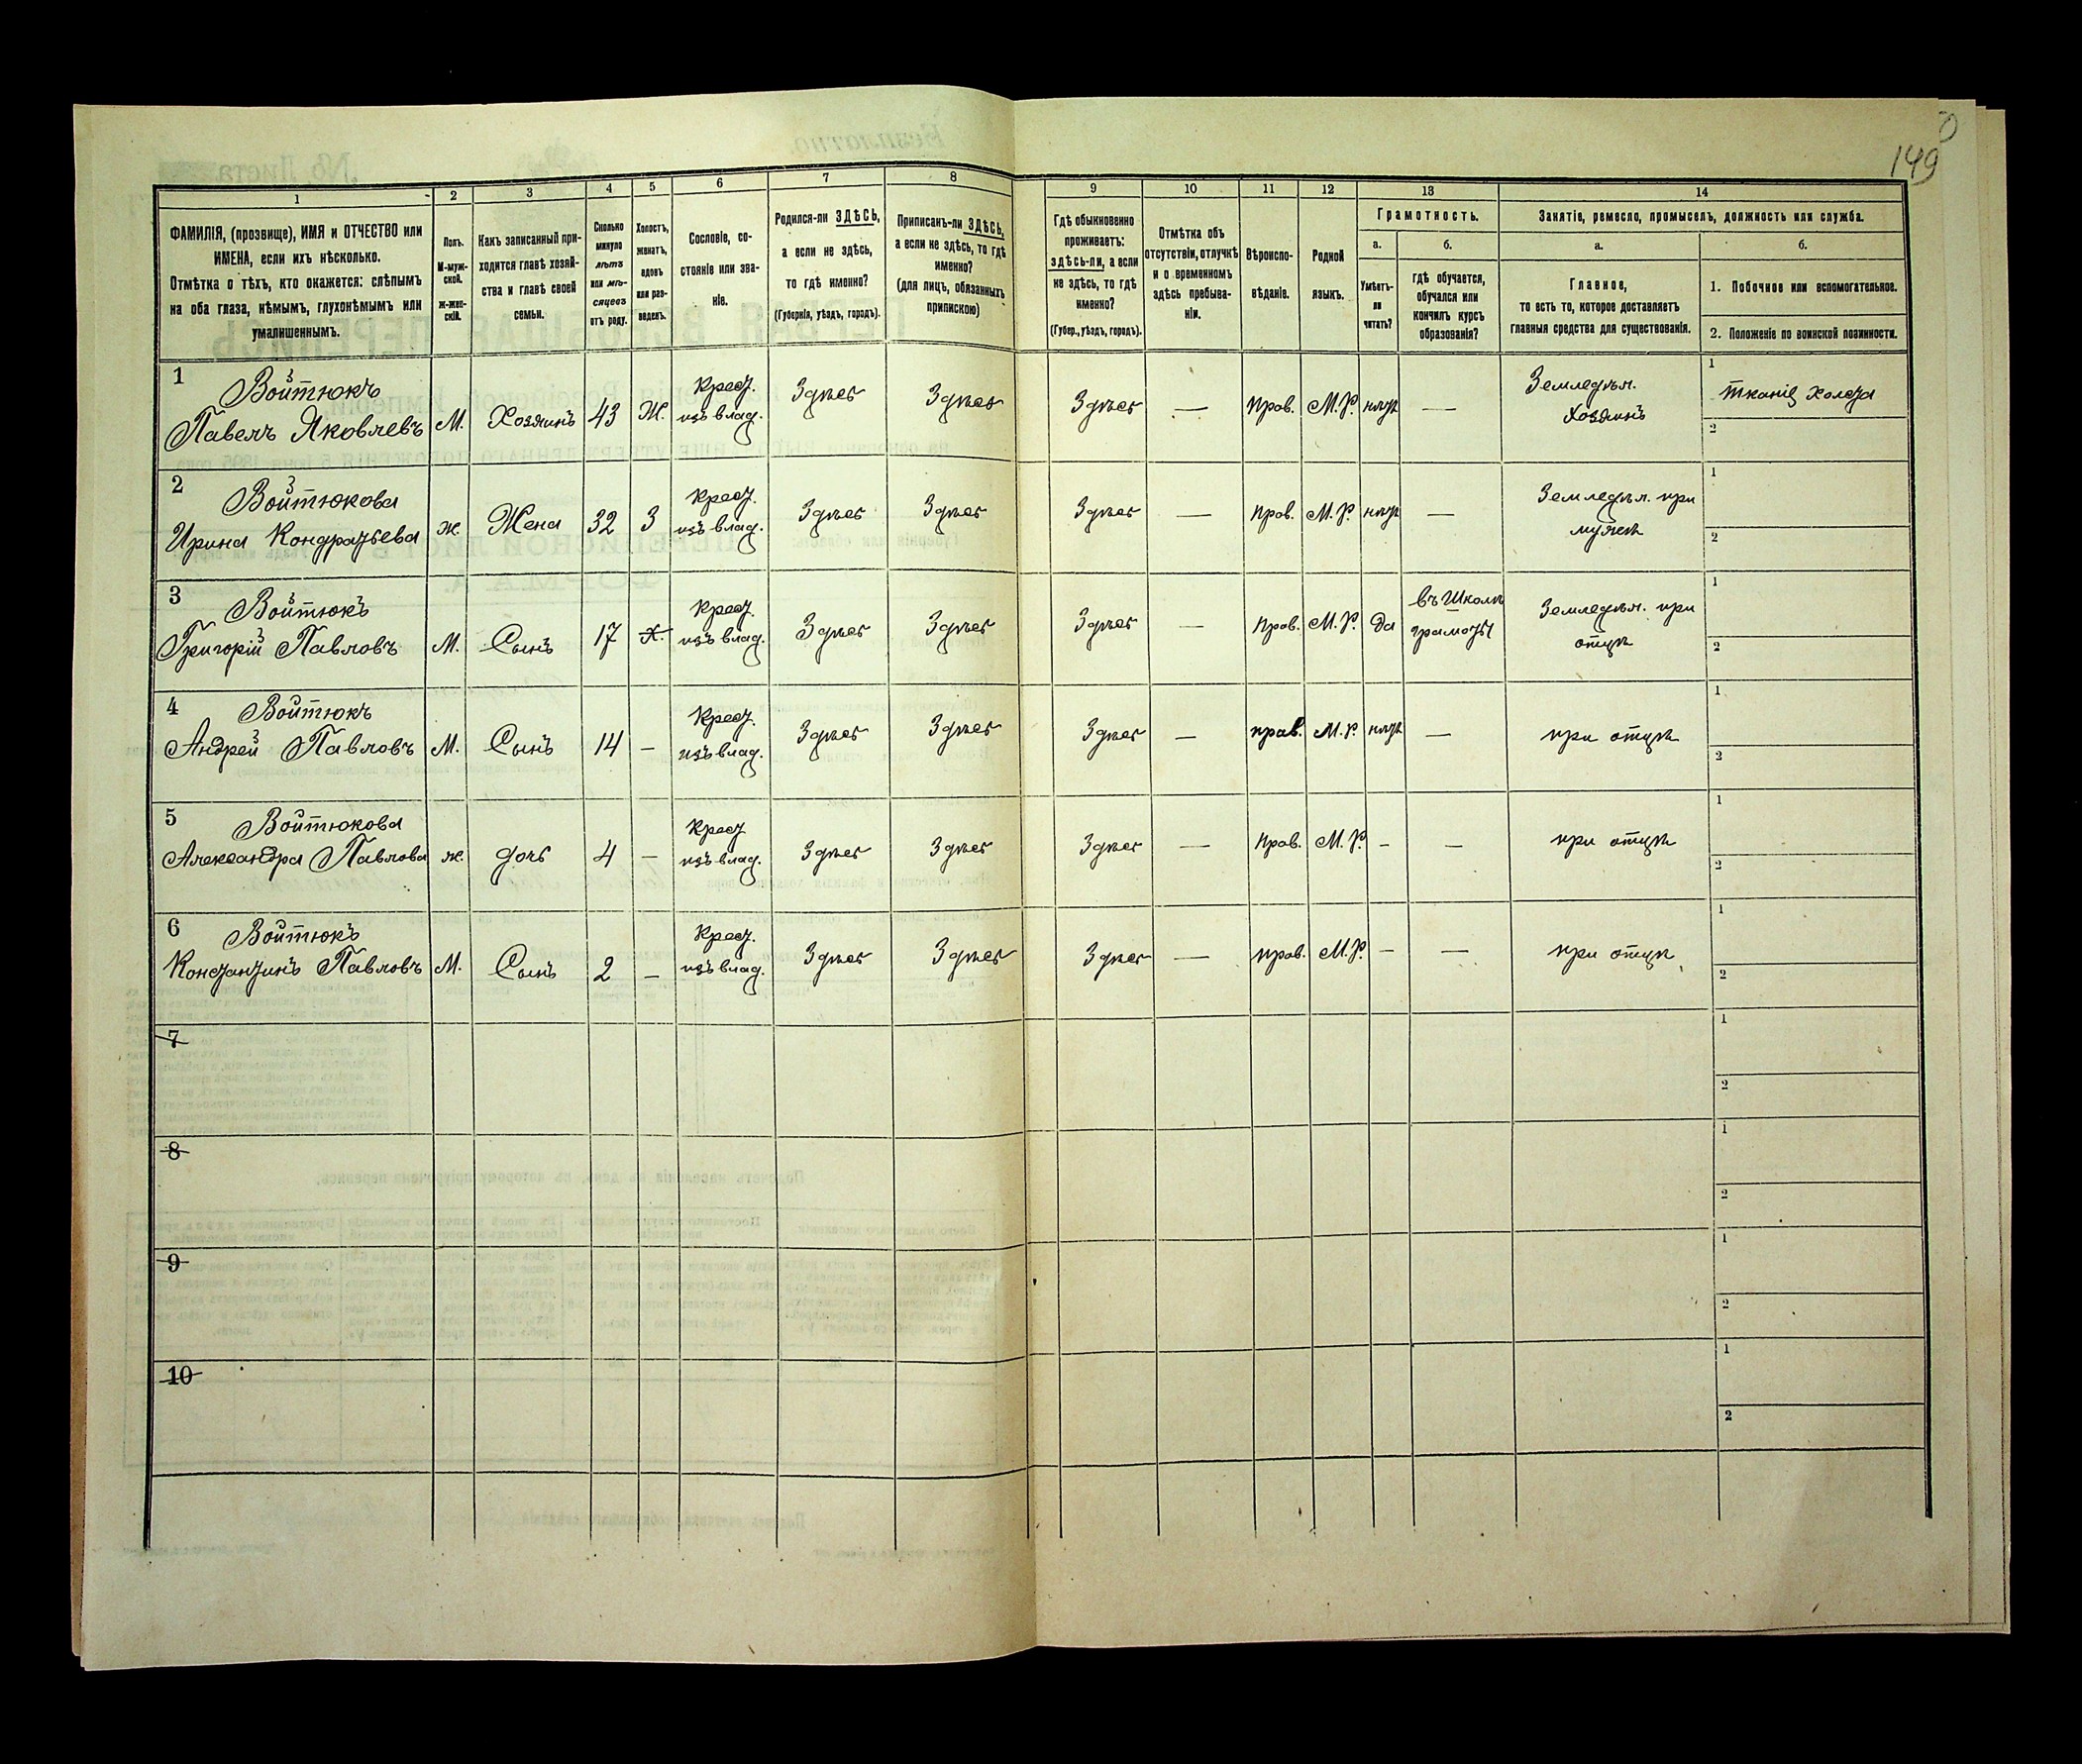 149
1
2
3
4
5
6
7
8
9
10
11
12
13
14
ФАМИЛІЯ, (прозвище), ИМЯ и ОТЧЕСТВО или
ИМЕНА, если ихъ нѣсколько.
Отмѣтка о тѣхъ, кто окажется: слѣпымъ
на оба глаза, нѣмымъ, глухонѣмымъ или
умалишеннымъ.
Полъ.
М-муж-
ской.
Ж-жен-
скій.
Какъ записанный при-
ходится главѣ хозяй-
ства и главѣ своей
семьи.
Сколько
минуло
лѣтъ
или мѣ-
сяцевъ
отъ роду.
Холостъ,
женатъ,
вдовъ
или раз-
веденъ.
Сословіе, со-
стояніе или зва-
ніе.
Родился-ли ЗДѢСЬ,
а если не здѣсь,
то гдѣ именно?
(Губернія, уѣздъ, городъ).
Приписанъ-ли ЗДѢСЬ,
а если не здѣсь, то гдѣ
именно?
(для лицъ, обязанныхъ
припискою)
Гдѣ обыкновенно
проживаетъ:
здѣсь-ли, а если
не здѣсь, то гдѣ
именно?
(Губер., уѣздъ, городъ).
Отмѣтка объ
отсутствіи, отлучкѣ
и о временномъ
здѣсь пребыва-
ніи.
Вѣроиспо-
вѣданіе.
Родной
языкъ.
Грамотность.
а.
б.
Умѣетъ-
ли
читать?
Гдѣ обучается,
обучался или
кончилъ курсъ
образованія?
Занятіе, ремесло, промыселъ, должность или служба.
а.
б.
Главное,
то есть то, которое доставляетъ
главныя средства для существованія.
1. Побочное или вспомогательное.
2. Положеніе по воинской повинности.
1
Войтюкъ
Павелъ Яковлевъ
М.
Хозяинъ
43
Ж.
Крест.
изъ влад.
Здѣсь
Здѣсь
Здѣсь
—
Прав.
М.Р.
нѣтъ
—
Земледѣл.
Хозяинъ
1
ткачъ холста
2
2
Войтюкова
Ирина Кондратьева
ж.
Жена
32
З
Крест.
изъ влад.
Здѣсь
Здѣсь
Здѣсь
—
Прав.
М.Р.
нѣтъ
—
Земледѣл. при
мужѣ
1
2
3
Войтюкъ
Григорій Павловъ
М.
Сынъ
17
Х.
Крест.
изъ влад.
Здѣсь
Здѣсь
Здѣсь
—
Прав.
М.Р.
да
въ Школѣ
грамоты
Земледѣл. при
отцѣ
1
2
4
Войтюкъ
Андрей Павловъ
М.
Сынъ
14
—
Крест.
изъ влад.
Здѣсь
Здѣсь
Здѣсь
—
прав.
М.Р.
нѣтъ
—
при отцѣ
1
2
5
Войтюкова
Александра Павлова
ж.
дочь
4
—
Крест
изъ влад.
Здѣсь
Здѣсь
Здѣсь
—
Прав.
М.Р.
-
—
при отцѣ
1
2
6
Войтюкъ
Константинъ Павловъ
М.
Сынъ
2
—
Крест.
изъ влад.
Здѣсь
Здѣсь
Здѣсь
—
прав.
М.Р.
-
—
при отцѣ
1
2
7
1
2
8
1
2
9
1
2
10
1
2